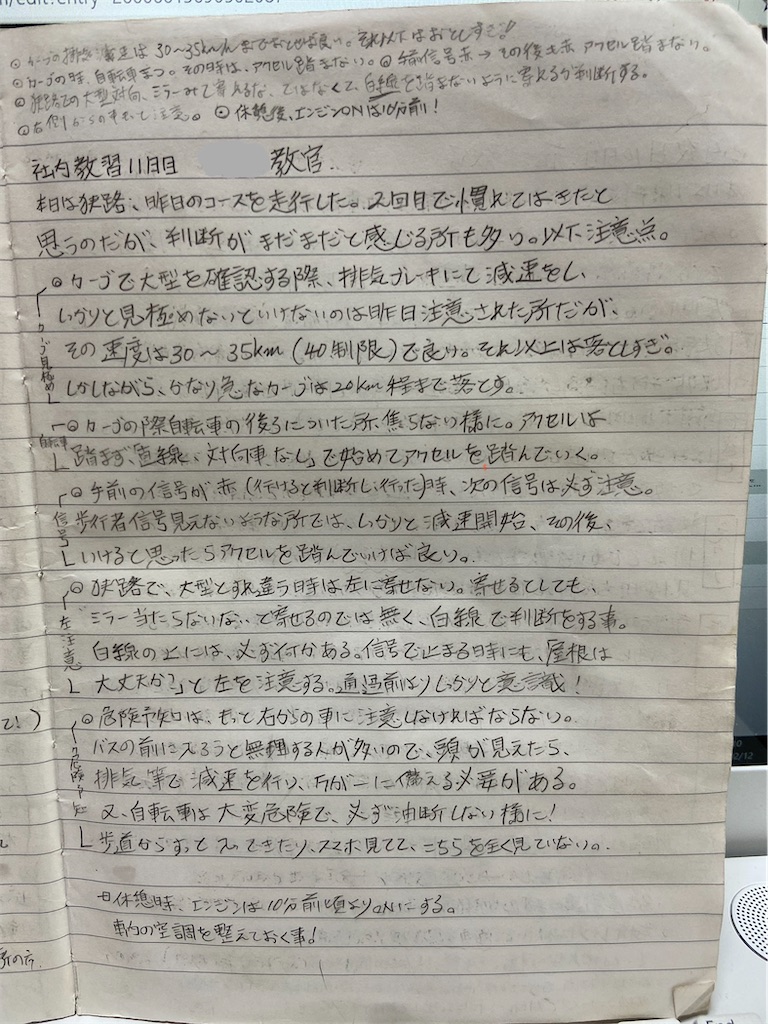 ◎カーブの排気減速は30〜35km/hまでおとせば良い。それ以下はおとしすぎ!!
◎カーブの時、自転車まつ。その時は、アクセル踏まない。◎手前信号赤→その後も赤 アクセル踏まない。
◎狭路での大型対向、ミラーみて寄えるな、ではなくて、白線を踏まないように寄えるか判断する。
◎右側からの車もっと注意。 ◎休憩後、エンジンONは10分前!
社内教習11日目 教官
本日は狭路、昨日のコースを走行した。2回目で慣れてはきたと
思うのだが、判断がまだまだと感じる所も多い。以下、注意点。
カーブ見極め
◎カーブで大型を確認する際、排気ブレーキにて減速をし、
しっかりと見極めないといけないのは昨日注意された所だが、
その速度は30〜35km(40制限)で良い。それ以上は落としすぎ。
しかしながら、かなり急なカーブは20km程まで落とす。
自転車
◎カーブの際自転車の後ろについた所、焦らない様に。アクセルは
踏まず、「直線、対向車なし」で始めてアクセルを踏んでいく。
信号
◎手前の信号が赤(行けると判断し行った)時、次の信号は必ず注意。
歩行者信号見えないような所では、しっかりと減速開始、その後、
いけると思ったらアクセルを踏んでいけば良い。
左注意
◎狭路で、大型とすれ違う時は左に寄せない。寄せるとしても、
ミラー当たらないないで寄せるのでは無く、白線で判断をする事。
白線の上には、必ず何かある。信号で止まる時にも、「屋根は
大丈夫か?」と左を注意する。通過前はしっかりと意識!
危険予知
◎危険予知は、もっと右からの車に注意しなければならない。
バスの前に入ろうと無理する人が多いので、頭が見えたら、
排気等で減速を行い、万が一に備える必要がある。
又、自転車は大変危険で、必ず油断しない様に!
歩道からすっと入ってきたり、スマホ見てて、こちらを全く見ていない。
休憩時、エンジンは10分前頃よりONにする。
車内の空調を整えておく事!
て!)
所の方